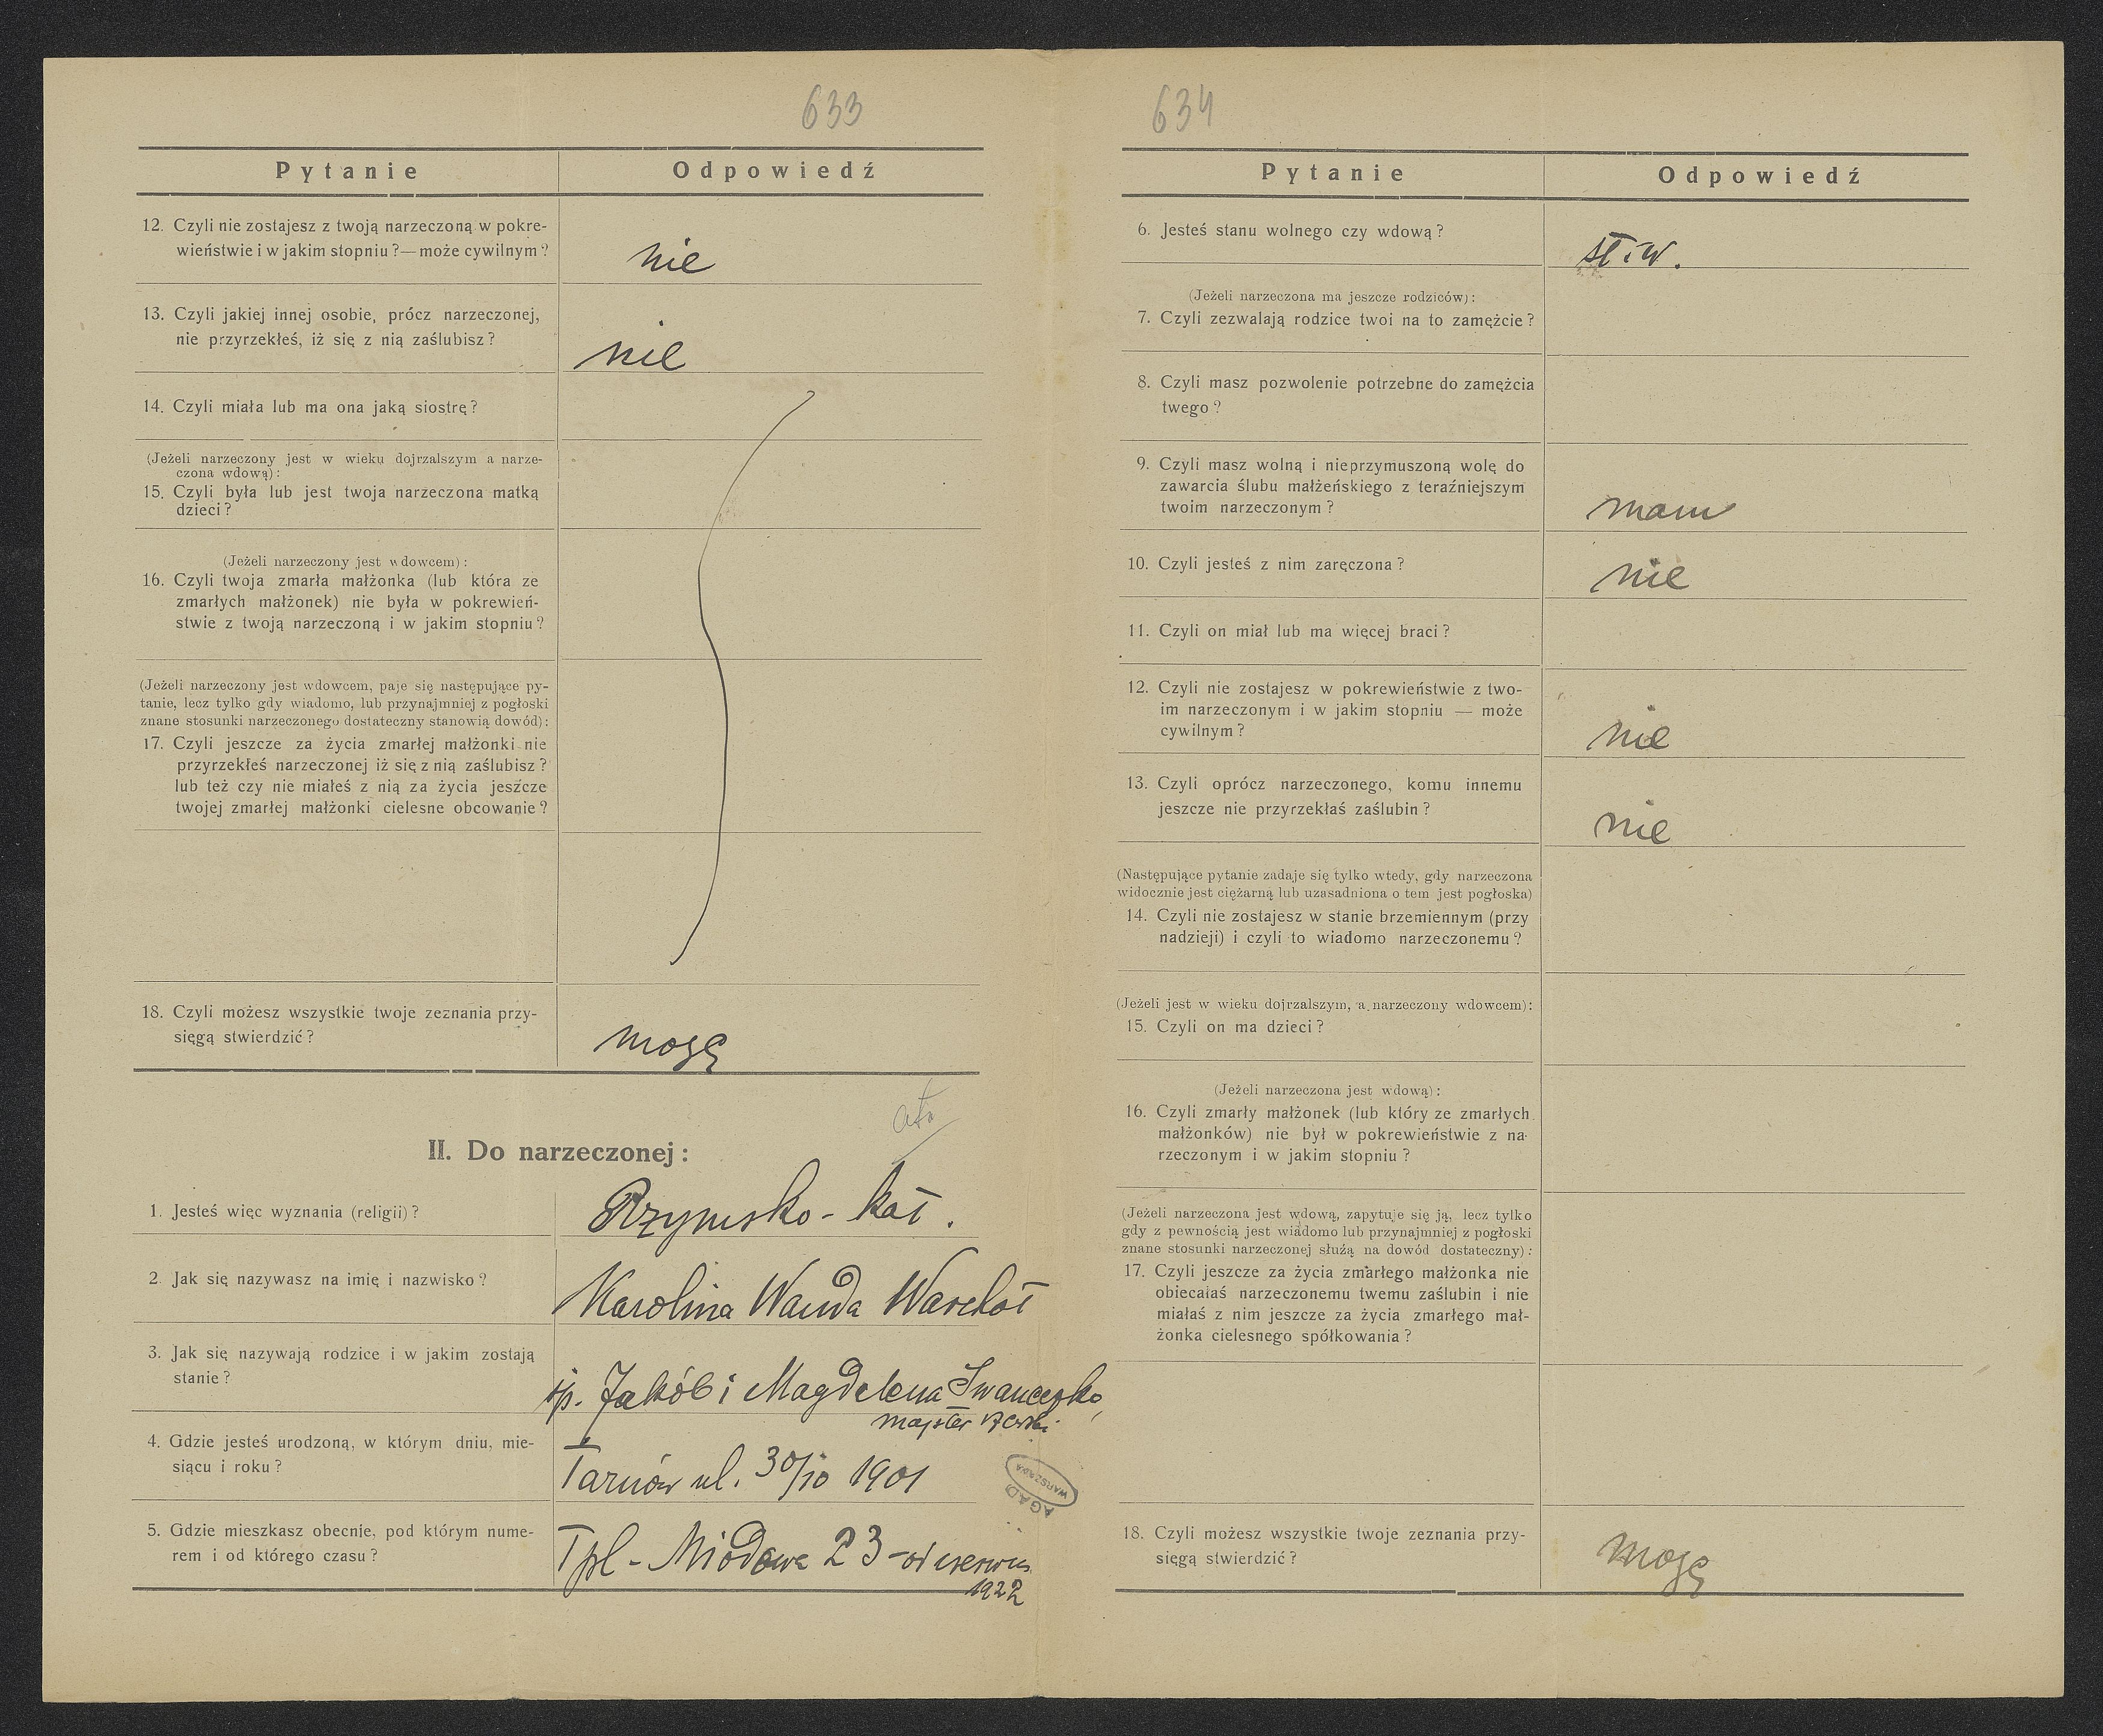 633
Pytanie Odpowiedź
12. Czyli nie zostajesz z twoją narzeczoną w pokre-
wieństwie i w jakim stopniu ?—może cywilnym ?
nie
13. Czyli jakiej innej osobie, prócz narzeczonej,
nie przyrzekłeś, iż się z nią zaślubisz ?
nie
14. Czyli miała lub ma ona jaką siostrę ?
(Jeżeli narzeczony jest w wieku dojrzalszym a narze-
czona wdową) :
15. Czyli była lub jest twoja narzeczona matką
dzieci ?
(Jeżeli narzeczony jest wdowcem) :
16. Czyli twoja zmarła małżonka (lub która ze
zmarłych małżonek) nie była w pokrewień-
stwie z twoją narzeczoną i w jakim stopniu ?
(Jeżeli narzeczony jest wdowcem, paje się następujące py-
tanie, lecz tylko gdy wiadomo, lub przynajmniej z pogłoski
znane stosunki narzeczonego dostateczny stanowią dowód) :
17. Czyli jeszcze za życia zmarłej małżonki nie
przyrzekłeś narzeczonej iż się z nią zaślubisz ?
lub też czy nie miałeś z nią za życia jeszcze
twojej zmarłej małżonki cielesne obcowanie ?
18. Czyli możesz wszystkie twoje zeznania przy-
sięgą stwierdzić ?
mogę
II. Do narzeczonej :
1. Jesteś więc wyznania (religii) ?
Rzymsko - kat.
2. Jak się nazywasz na imię i nazwisko ?
Karolina Wanda Warchoł
3. Jak się nazywają rodzice i w jakim zostają
stanie ?
śp. Jakób i Magdalena Iwanceszko,
majster
4. Gdzie jesteś urodzoną, w którym dniu, mie-
siącu i roku ?
Tarnów ul. 30/10 1901
5. Gdzie mieszkasz obecnie, pod którym nume-
rem i od którego czasu ?
Tpl - Miodowa 23 - od czerwca
1922
AGAD
WARSZAWA
634
Pytanie Odpowiedź
6. Jesteś stanu wolnego czy wdową ?
st. w.
(Jeżeli narzeczona ma jeszcze rodziców) :
7. Czyli zezwalają rodzice twoi na to zamężcie ?
8. Czyli masz pozwolenie potrzebne do zamężcia
twego ?
9. Czyli masz wolną i nieprzymuszoną wolę do
zawarcia ślubu małżeńskiego z teraźniejszym
twoim narzeczonym ?
mam
10. Czyli jesteś z nim zaręczona ?
nie
11. Czyli on miał lub ma więcej braci ?
12. Czyli nie zostajesz w pokrewieństwie z two-
im narzeczonym i w jakim stopniu — może
cywilnym ?
nie
13. Czyli oprócz narzeczonego, komu innemu
jeszcze nie przyrzekłaś zaślubin ?
nie
(Następujące pytanie zadaje się tylko wtedy, gdy narzeczona
widocznie jest ciężarną lub uzasadniona o tem jest pogłoska)
14. Czyli nie zostajesz w stanie brzemiennym (przy
nadzieji) i czyli to wiadomo narzeczonemu ?
(Jeżeli jest w wieku dojrzalszym, a narzeczony wdowcem) :
15. Czyli on ma dzieci ?
(Jeżeli narzeczona jest wdową) :
16. Czyli zmarły małżonek (lub który ze zmarłych
małżonków) nie był w pokrewieństwie z na-
rzeczonym i w jakim stopniu ?
(Jeżeli narzeczona jest wdową, zapytuje się ją, lecz tylko
gdy z pewnością jest wiadomo lub przynajmniej z pogłoski
znane stosunki narzeczonej służą na dowód dostateczny) :
17. Czyli jeszcze za życia zmarłego małżonka nie
obiecałaś narzeczonemu twemu zaślubin i nie
miałaś z nim jeszcze za życia zmarłego mał-
żonka cielesnego spółkowania ?
18. Czyli możesz wszystkie twoje zeznania przy-
sięgą stwierdzić ?
mogę